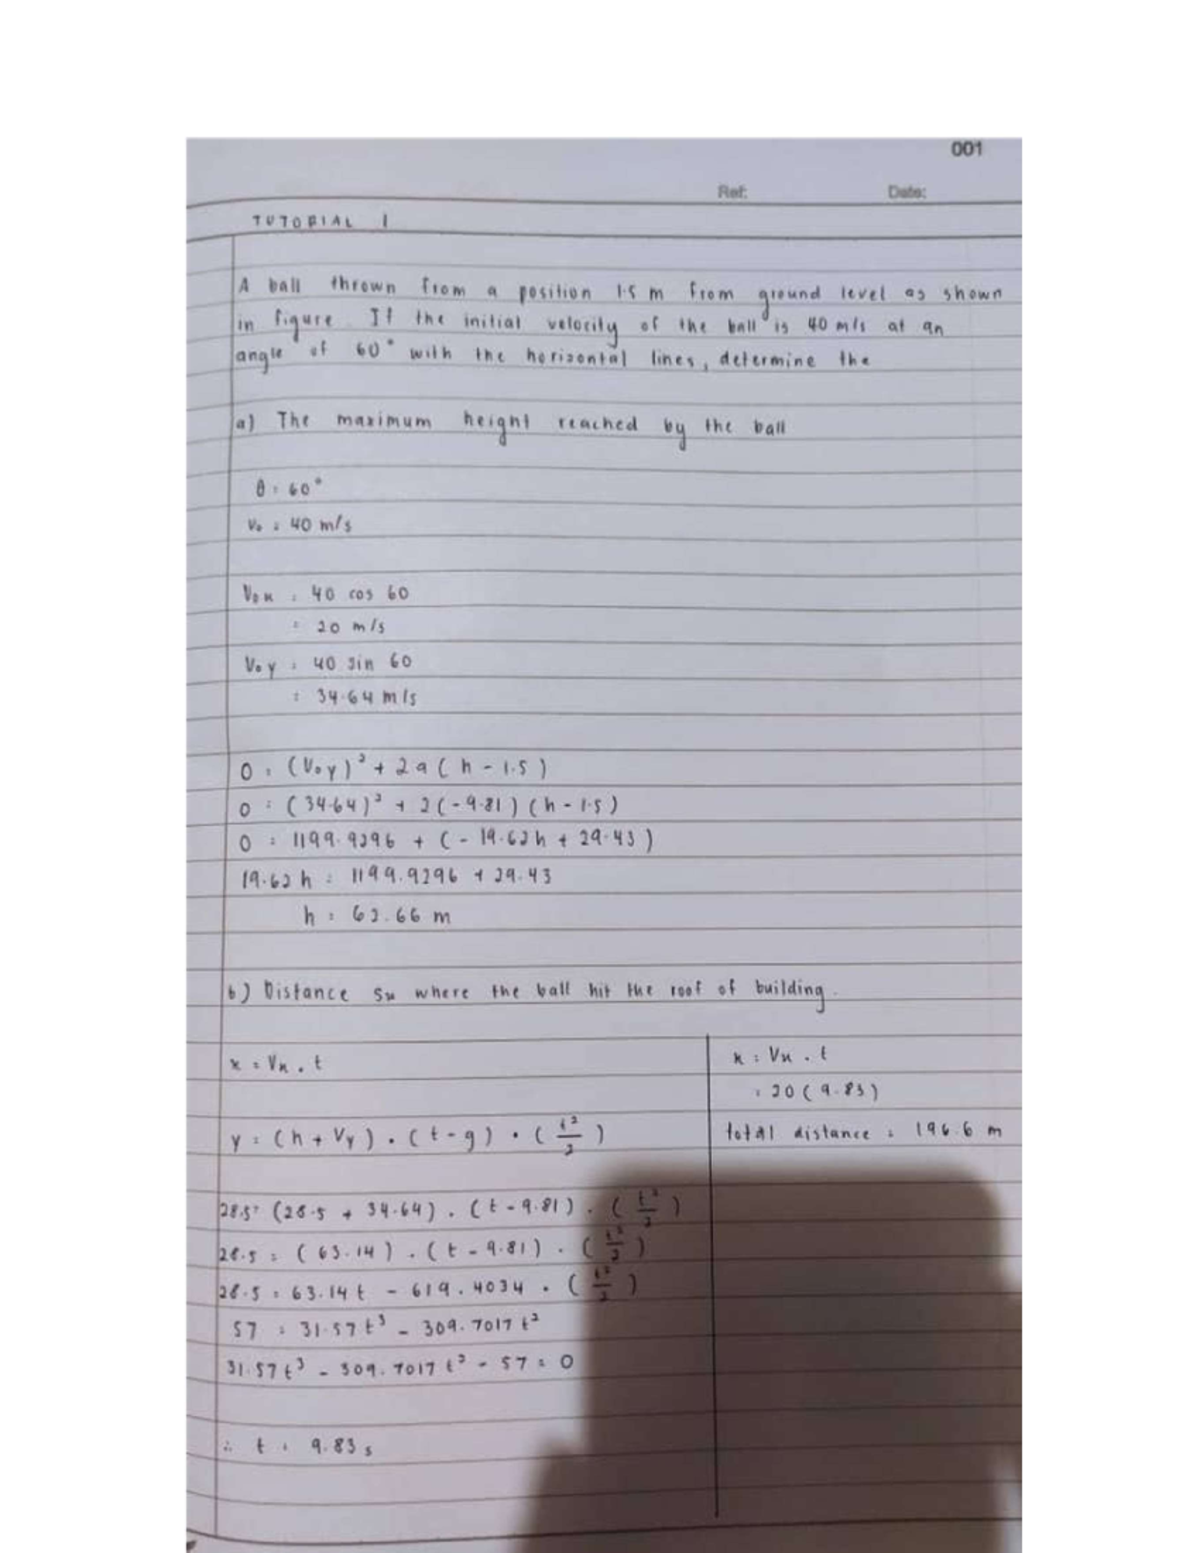 001
Ref: Date:
TUTORIAL 1
A ball thrown from a position 1.5 m from ground level as shown
in figure. If the initial velocity of the ball is 40 m/s at an
angle of 60° with the horizontal lines, determine the
a) The maximum height reached by the ball
θ = 60°
V₀ = 40 m/s
V₀x = 40 cos 60
= 20 m/s
V₀y = 40 sin 60
= 34.64 m/s
0 = (V₀y)² + 2a (h - 1.5)
0 = (34.64)² + 2(-9.81) (h - 1.5)
0 = 1199.9296 + (-19.62h + 29.43)
19.62 h = 1199.9296 + 29.43
h = 62.66 m
b) Distance Sx where the ball hit the roof of building.
x = Vx . t
y = (h + Vy) . (t - g) . (t²/2)
28.5 = (28.5 + 34.64) . (t - 9.81) . (t²/2)
28.5 = (63.14) . (t - 9.81) . (t²/2)
28.5 = 63.14 t - 619.4034 . (t²/2)
57 = 31.57 t³ - 309.7017 t²
31.57 t³ - 309.7017 t² - 57 = 0
∴ t = 9.83 s
x = Vx . t
= 20 (9.83)
total distance = 196.6 m